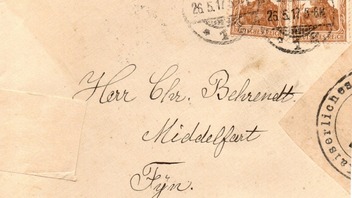 26.5.17
26.5.17
Herr Chr. Behrendt.
Middelfart
Fyn.
Kaiserliches